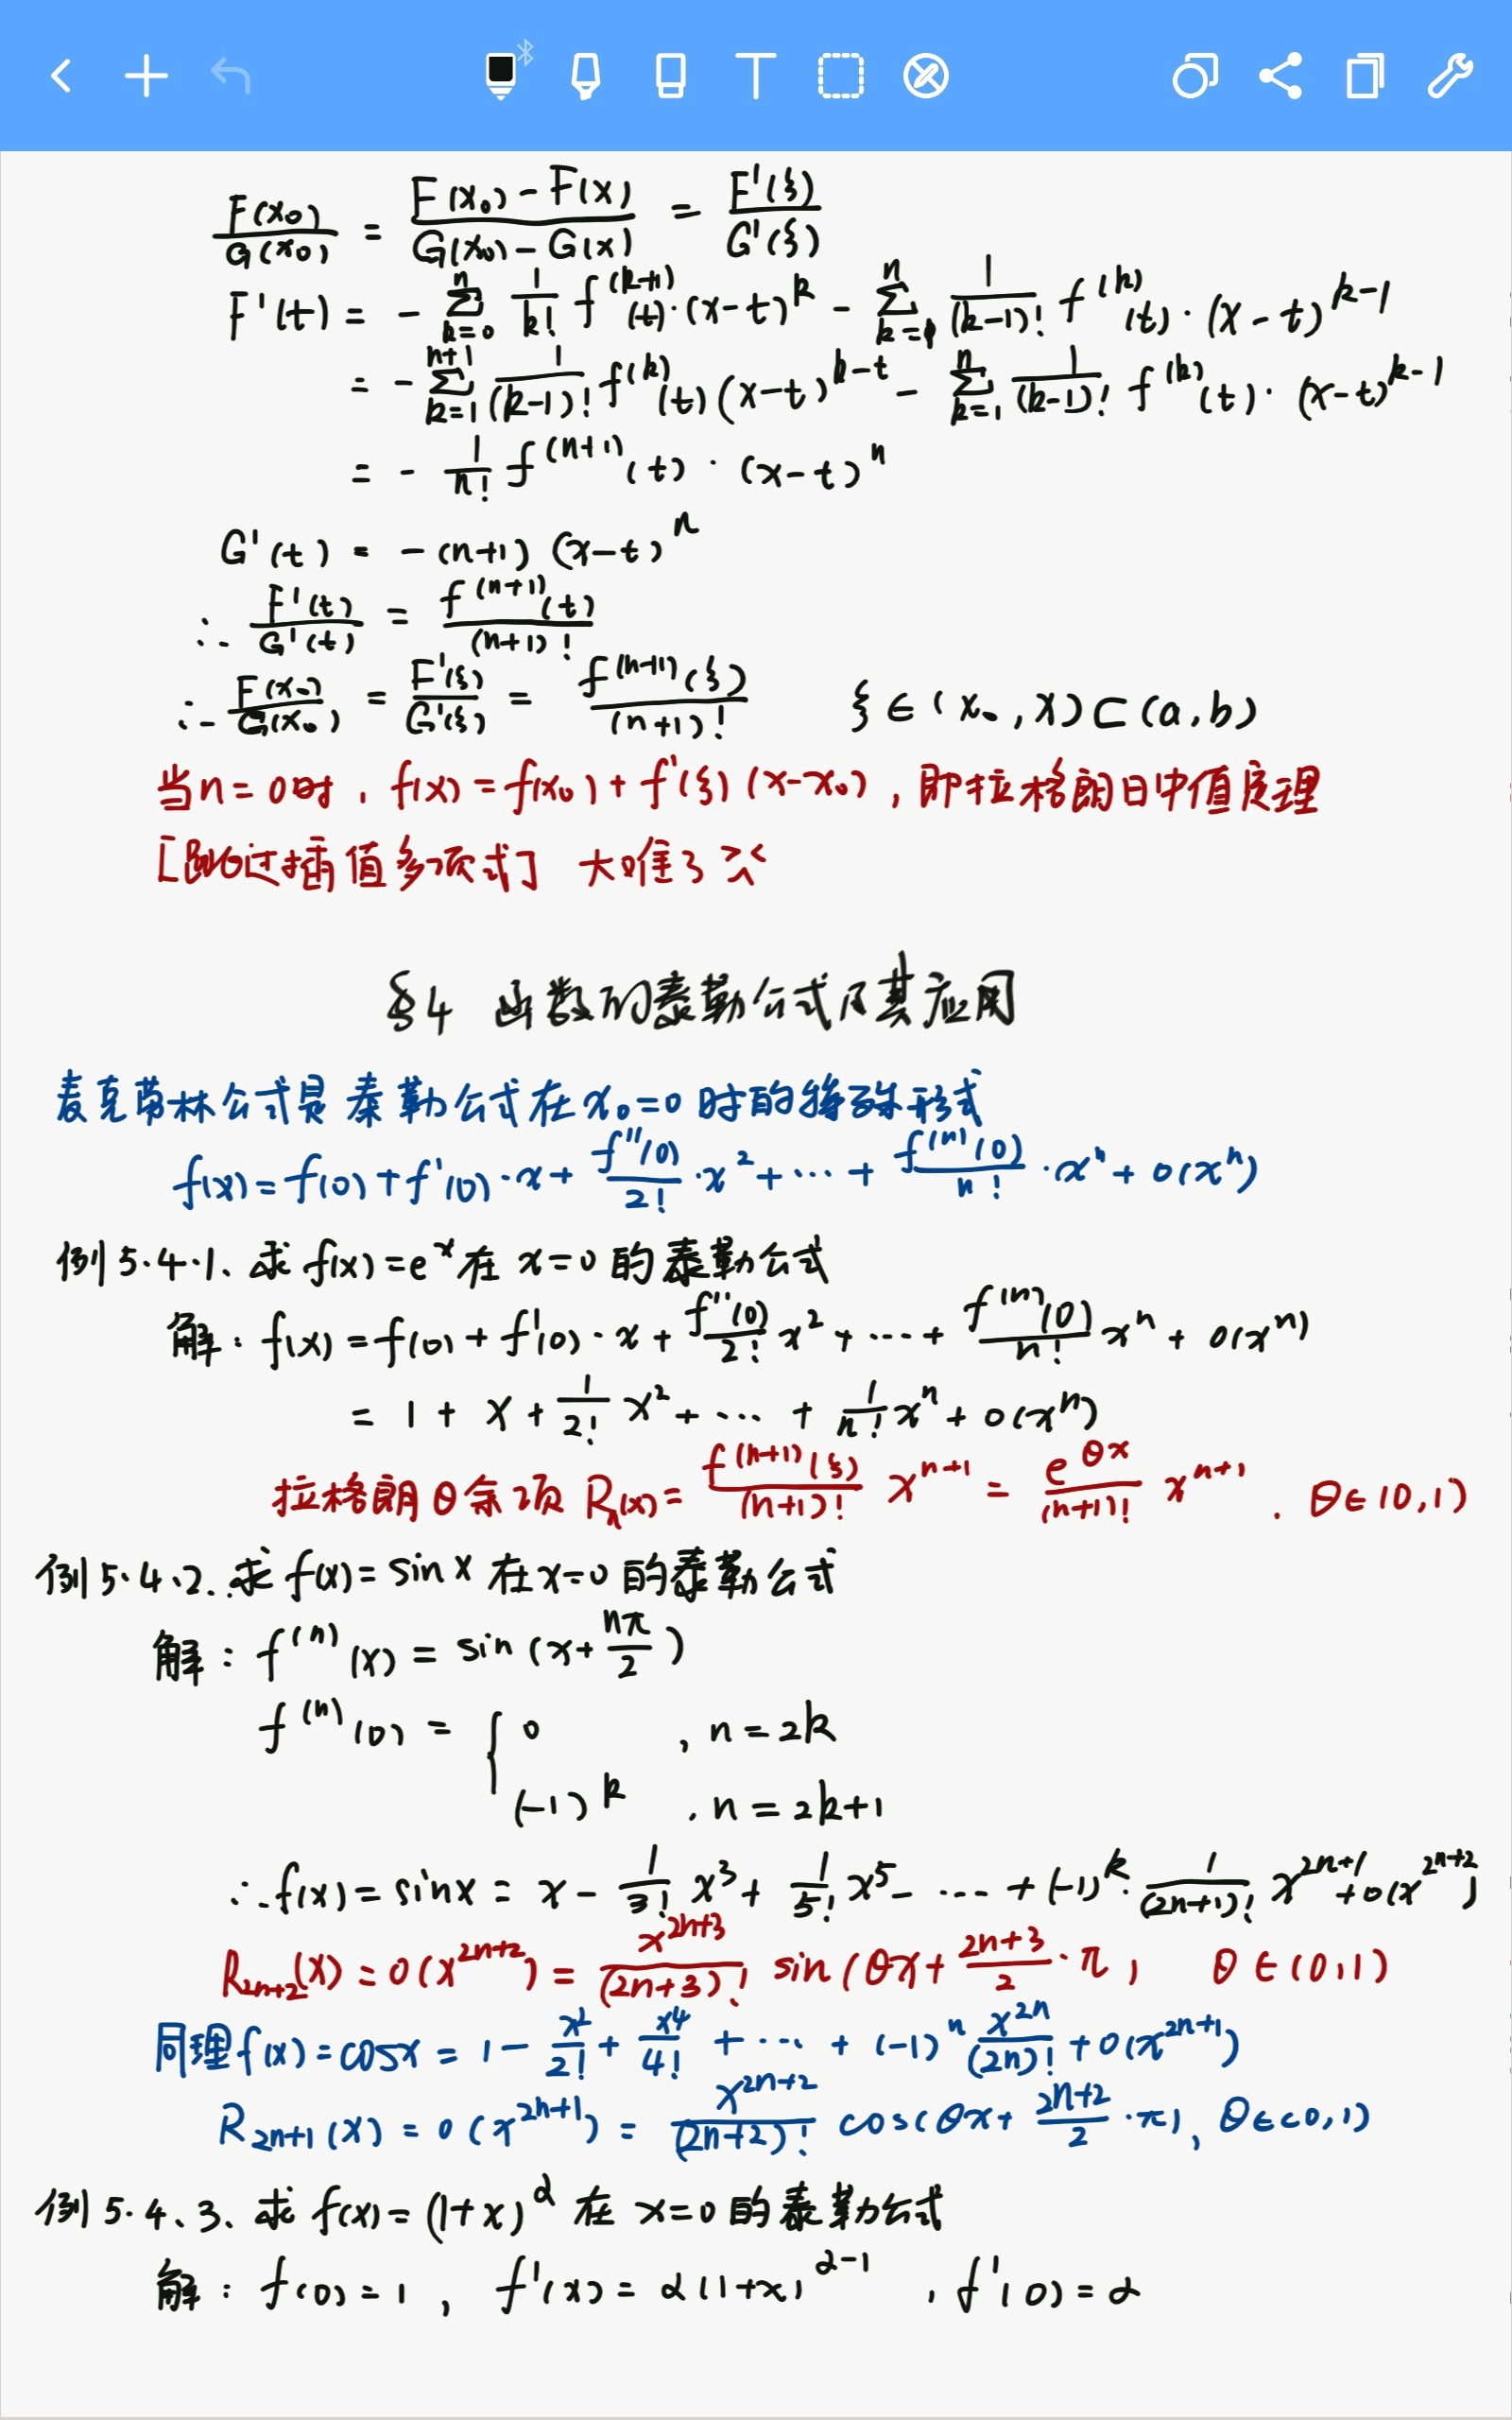 F(x₀)/G(x₀) = (F(x₀) - F(x))/(G(x₀) - G(x)) = F'(ξ)/G'(ξ)
F'(t) = - ∑_{k=0}^{n} 1/k! f^{(k+1)}(t)·(x-t)^k - ∑_{k=1}^{n} 1/(k-1)! f^{(k)}(t)·(x-t)^{k-1}
= - ∑_{k=1}^{n+1} 1/(k-1)! f^{(k)}(t)(x-t)^{k-t} - ∑_{k=1}^{n} 1/(k-1)! f^{(k)}(t)·(x-t)^{k-1}
= - 1/n! f^{(n+1)}(t)·(x-t)^n
G'(t) = -(n+1)(x-t)^n
∴ F'(t)/G'(t) = f^{(n+1)}(t)/(n+1)!
∴ F(x₀)/G(x₀) = F'(ξ)/G'(ξ) = f^{(n+1)}(ξ)/(n+1)! ξ∈(x₀,x)⊂(a,b)
当n=0时, f(x)=f(x₀)+f'(ξ)(x-x₀), 即拉格朗日中值定理
[ 过插值多项式] 太难了
§4 函数的泰勒公式及其应用
麦克劳林公式是泰勒公式在x₀=0时的特殊形式
f(x)=f(0)+f'(0)·x+f''(0)/2!·x²+···+f^{(n)}(0)/n!·x^n+o(x^n)
例5.4.1、求f(x)=e^x在x=0的泰勒公式
解: f(x)=f(0)+f'(0)·x+f''(0)/2! x²+····+f^{(n)}(0)/n! x^n+o(x^n)
= 1+x+1/2! x²+···+1/n! x^n+o(x^n)
拉格朗日余项 R_n(x)=f^{(n+1)}(ξ)/(n+1)! x^{n+1}=e^{θx}/(n+1)! x^{n+1}. θ∈(0,1)
例5.4.2.求f(x)=sinx在x=0的泰勒公式
解: f^{(n)}(x)=sin(x+nπ/2)
f^{(n)}(0)= { 0 , n=2k
(-1)^k . n=2k+1
∴f(x)=sinx=x-1/3! x³+1/5! x⁵-···+(-1)^k·1/(2n+1)! x^{2n+1}+o(x^{2n+2})
R_{2n+2}(x)=o(x^{2n+2})=x^{2n+3}/(2n+3)! sin(θx+2n+3/2·π), θ∈(0,1)
同理f(x)=cosx=1-x²/2!+x⁴/4!+···+(-1)^n x^{2n}/(2n)!+o(x^{2n+1})
R_{2n+1}(x)=o(x^{2n+1})=x^{2n+2}/(2n+2)! cos(θx+2n+2/2·π), θ∈(0,1)
例5.4.3、求f(x)=(1+x)^α在x=0的泰勒公式
解: f(0)=1, f'(x)=α(1+x)^{α-1}, f'(0)=α